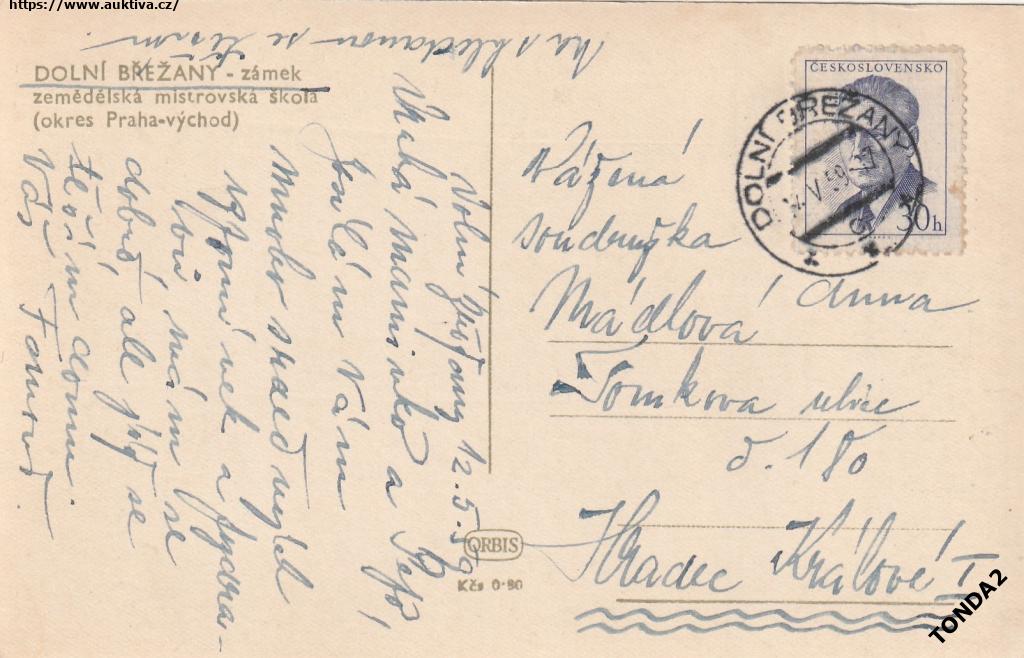 https://www.auktiva.cz/
DOLNÍ BŘEŽANY - zámek
zemědělská mistrovská škola
(okres Praha-východ)
Dolní Břežany 12.5.59
maminko a
posílám Vám
mnoho srdečných
vzpomínek a
mám se
dobře ale již se
těším domu.
Váš
Na shledanou se těším.
ČESKOSLOVENSKO
30h
DOLNÍ BŘEŽANY
V. 59
Vážená
soudružka
Mádlová Anna
Tomkova ulice
č. 180
Hradec Králové I
ORBIS
Kčs 0·80
TONDA2